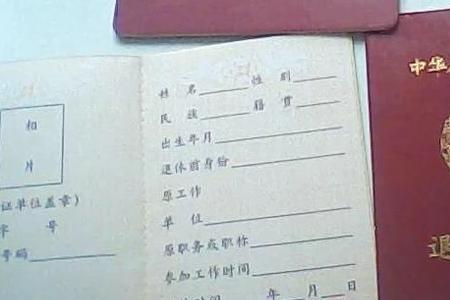 相
片
证单位盖章)
字 号
号码
姓 名 性 别
民 族 籍 贯
出生年月
退休前身份
原工作
单 位
原职务或职称
参加工作时间
时间 年 月 日
中华
退